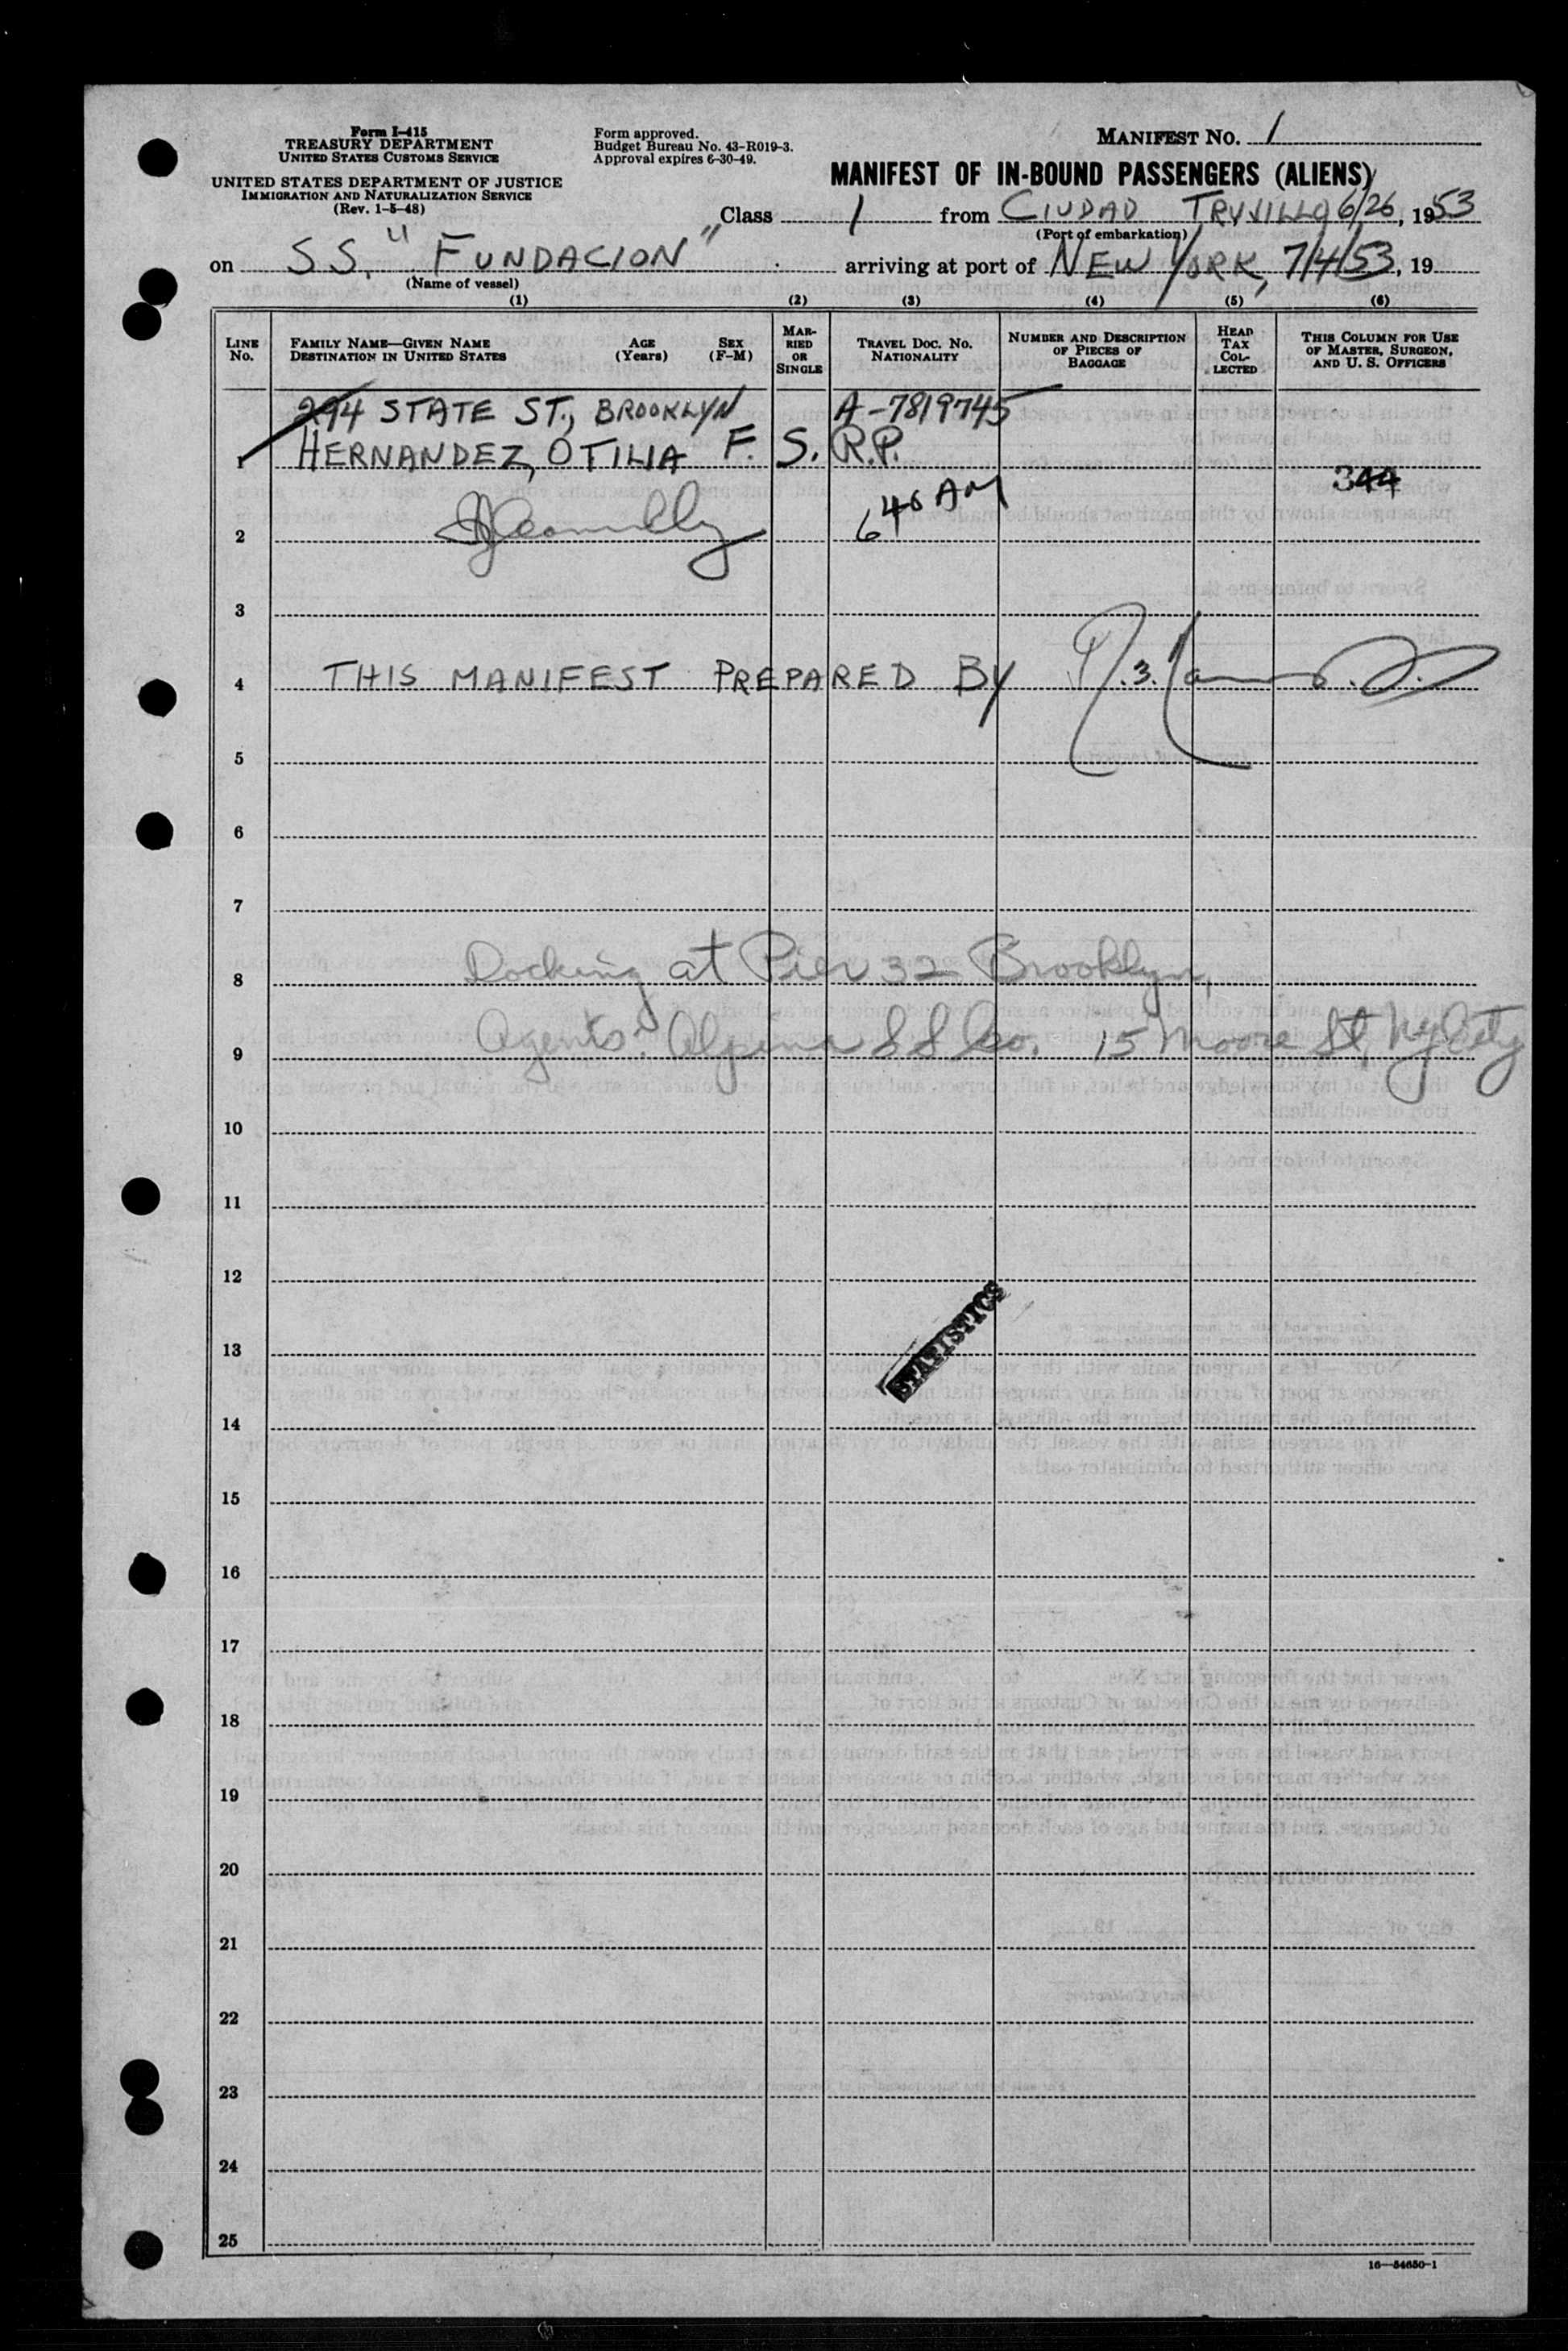 Form I-415
TREASURY DEPARTMENT
UNITED STATES CUSTOMS SERVICE
UNITED STATES DEPARTMENT OF JUSTICE
IMMIGRATION AND NATURALIZATION SERVICE
(Rev. 1-5-48)
Form approved.
Budget Bureau No. 43-R019-3.
Approval expires 6-30-49.
MANIFEST NO. 1
MANIFEST OF IN-BOUND PASSENGERS (ALIENS)
Class 1 from CIUDAD TRUJILLO 6/26, 1953
(Port of embarkation)
on SS. "FUNDACION" arriving at port of NEW YORK, 7/4/53, 19
(Name of vessel)
(1) (2) (3) (4) (5) (6)
LINE No.
FAMILY NAME—GIVEN NAME
DESTINATION IN UNITED STATES
AGE (Years)
SEX (F-M)
MARRIED OR SINGLE
TRAVEL DOC. NO.
NATIONALITY
NUMBER AND DESCRIPTION OF PIECES OF BAGGAGE
HEAD TAX COLLECTED
THIS COLUMN FOR USE OF MASTER, SURGEON, AND U. S. OFFICERS
294 STATE ST., BROOKLYN A-7819745
1 HERNANDEZ, OTILIA F. S. R.P.
344
2 6 40 AM
3
4 THIS MANIFEST PREPARED BY
5
6
7
8 Docking at Pier 32 Brooklyn,
9 Agents: Alpina SS Co. 15 Moore St, NyCity
10
11
12
STATISTICS
13
14
15
16
17
18
19
20
21
22
23
24
25
16—54650-1